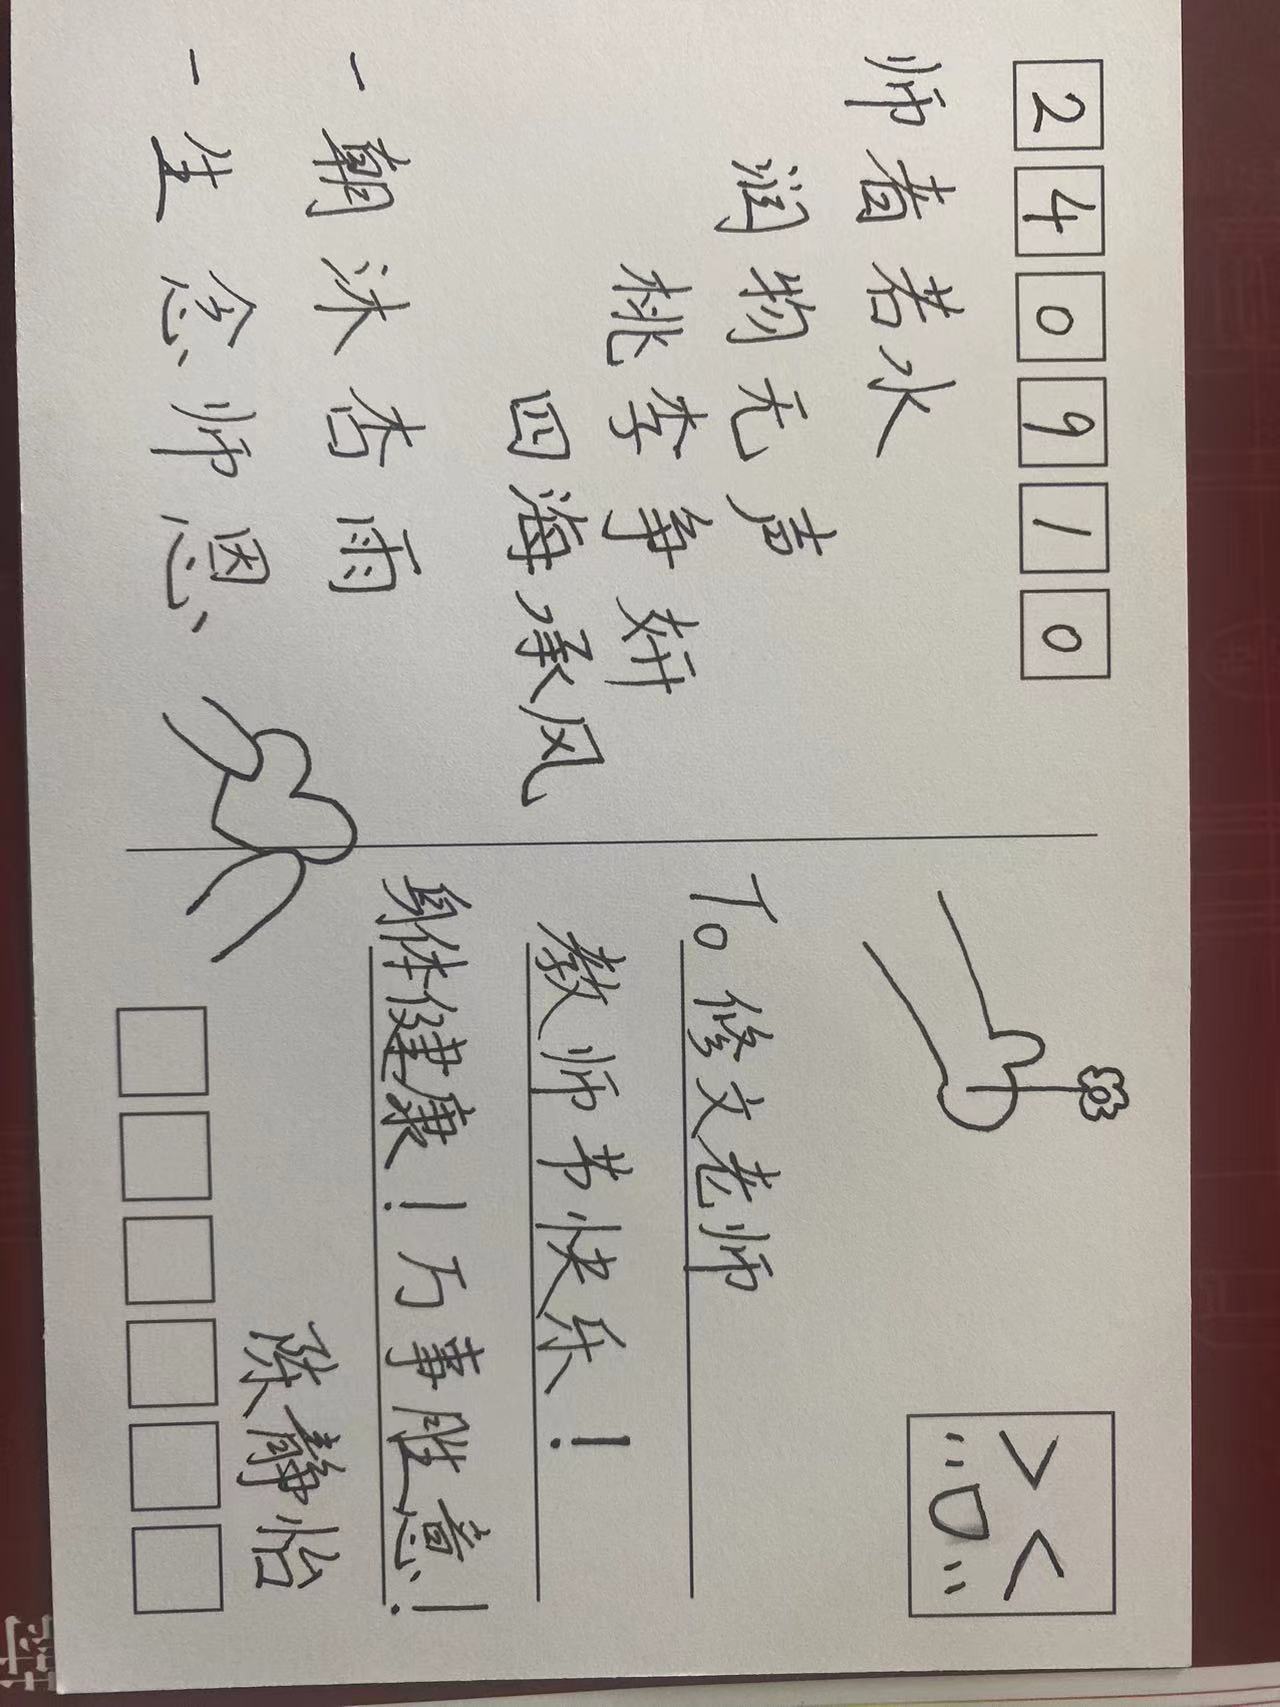 240910
师者若水
润物无声
桃李争妍
四海承风
一朝沐杏雨
一生念师恩
To 修文老师
教师节快乐!
身体健康!万事胜意!
陈静怡